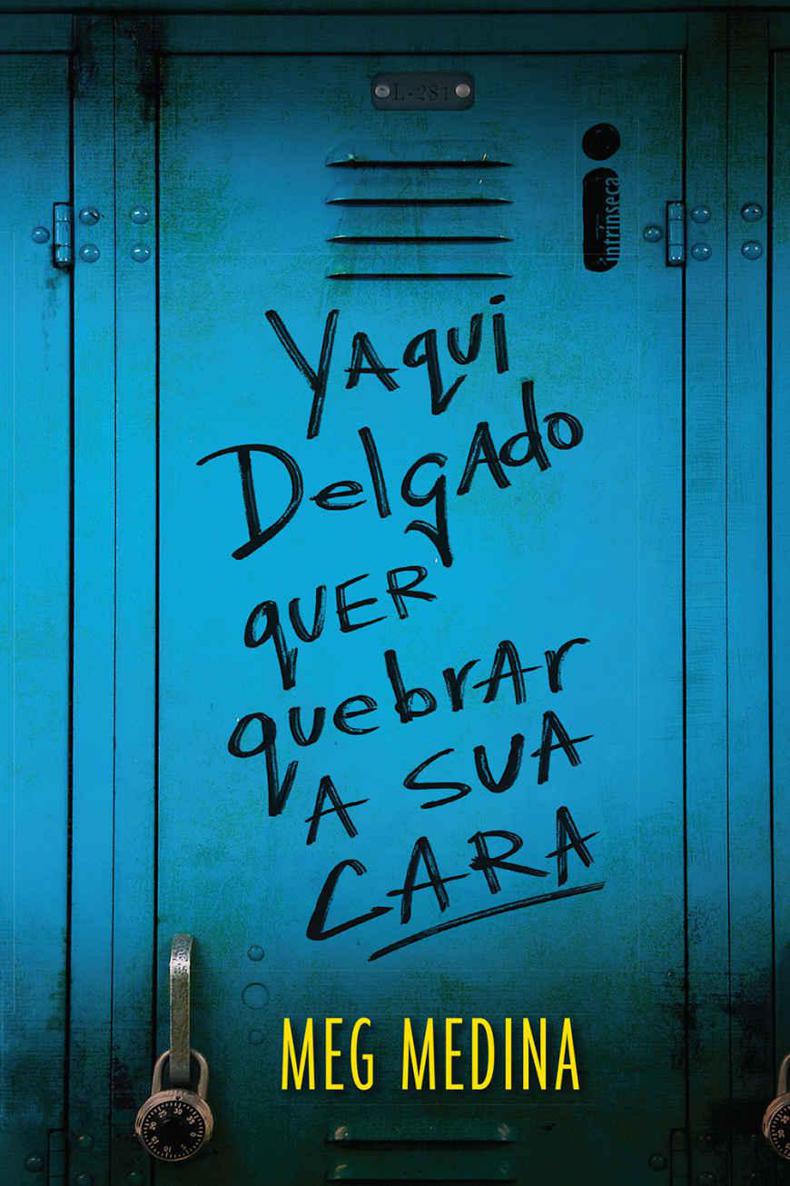 L-281
intrínseca
Yaqui
Delgado
quer
quebrar
a sua
cara
MEG MEDINA